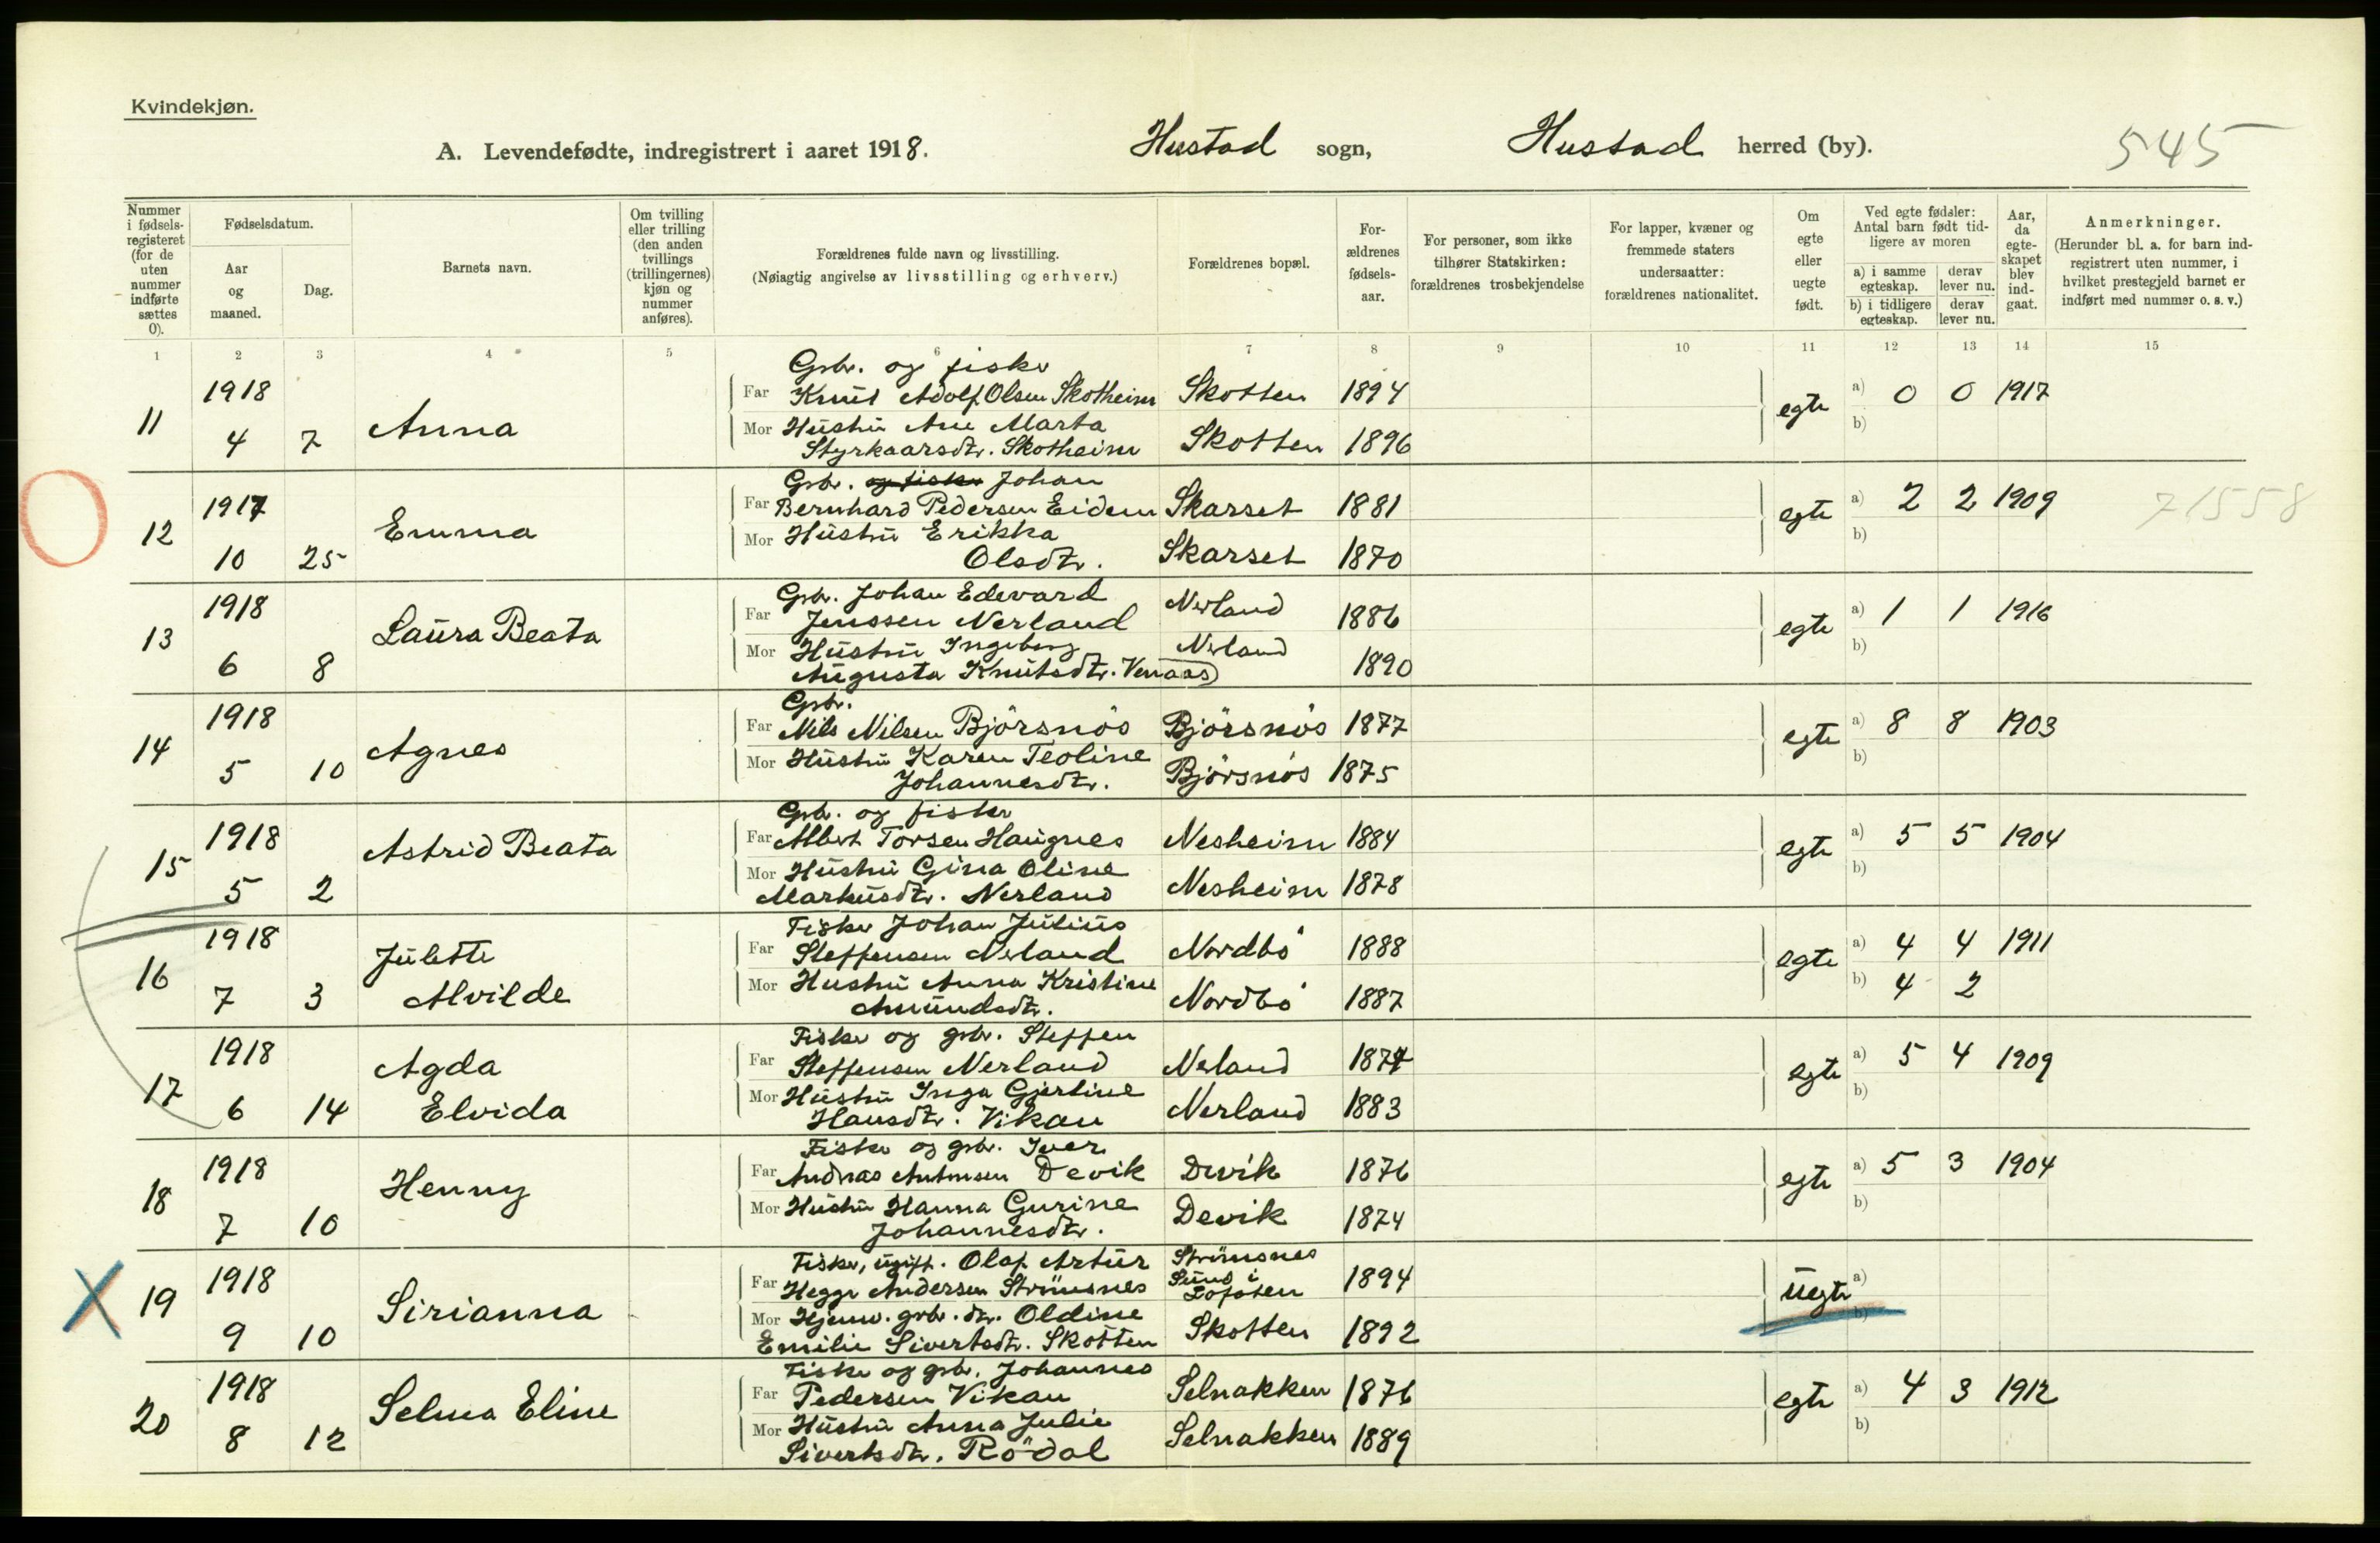 Kvindekjøn.
A. Levendefødte, indregistrert i aaret 1918. Hustad sogn, Hustad herred (by). 545
Nummer i fødsels-registeret (for de uten nummer indførte sættes 0).
Fødselsdatum.
Aar og maaned.
Dag.
Barnets navn.
Om tvilling eller trilling (den anden tvillings (trillingernes) kjøn og nummer anføres).
Forældrenes fulde navn og livsstilling.
(Nøiagtig angivelse av livsstilling og erhverv.)
Forældrenes bopæl.
For-ældrenes fødsels-aar.
For personer, som ikke tilhører Statskirken: forældrenes trosbekjendelse
For lapper, kvæner og fremmede staters undersaatter: forældrenes nationalitet.
Om egte eller uegte født.
Ved egte fødsler: Antal barn født tid-ligere av moren
a) i samme egteskap. derav lever nu.
b) i tidligere egteskap. derav lever nu.
Aar, da egte-skapet blev ind-gaat.
Anmerkninger.
(Herunder bl. a. for barn ind-registrert uten nummer, i hvilket prestegjeld barnet er indført med nummer o. s. v.)
1 2 3 4 5 6 7 8 9 10 11 12 13 14 15
Grbr. og fisker
11 1918 4 7 Anna Far Knut Adolf Olsen Skotheim Skotten 1894 egte a) 0 0 1917
Mor Hustru Ane Marta
Styrkaarsdtr. Skotheim Skotten 1896 b)
Gbr. og fisker Johan
12 1917 10 25 Emma Far Bernhard Pedersen Eidem Skarset 1881 egte a) 2 2 1909 71558
Mor Hustru Erikka
Olsdtr. Skarset 1870 b)
Gbr. Johan Edevard
13 1918 6 8 Laura Beata Far Jenssen Nerland Nerland 1886 egte a) 1 1 1916
Mor Hustru Ingeborg Nerland
Augusta Knutsdtr. Venaas) 1890 b)
Gbr.
14 1918 5 10 Agnes Far Nils Nilsen Björsnös Björsnös 1877 egte a) 8 8 1903
Mor Hustru Karen Teoline
Johannesdtr. Björsnös 1875 b)
Gbr. og fisker
15 1918 5 2 Astrid Beata Far Albert Torsen Haugnes Nesheim 1884 egte a) 5 5 1904
Mor Hustru Gina Oline
Markusdtr. Nerland Nesheim 1878 b)
Fisker Johan Julius
16 1918 7 3 Julette Alvilde Far Steffensen Nerland Nordbö 1888 egte a) 4 4 1911
Mor Hustru Anna Kristine
Amundsdtr. Nordbö 1887 b) 4 2
Fisker og gbr. Steffen
17 1918 6 14 Agda Elvida Far Steffensen Nerland Nerland 1874 egte a) 5 4 1909
Mor Hustru Inga Gjertine
Hansdtr. Vikan Nerland 1883 b)
Fisker og gbr. Iver
18 1918 7 10 Henny Far Andreas Antonsen Devik Devik 1876 egte a) 5 3 1904
Mor Hustru Hanna Gurine
Johannesdtr. Devik 1874 b)
Fisker, ugift. Olaf Artur Strömsnes
19 1918 9 10 Sirianna Far Hegge Andersen Strömsnes Sund i Lofoten 1894 uegte a)
Mor Hjemv. gbr. dtr. Oldine
Emilie Sivertsdtr. Skotten Skotten 1892 b)
Fisker og gbr. Johannes
20 1918 8 12 Selma Eline Far Pedersen Vikan Selnakken 1876 egte a) 4 3 1912
Mor Hustru Anna Julie
Sivertsdtr. Rödal Selnakken 1889 b)